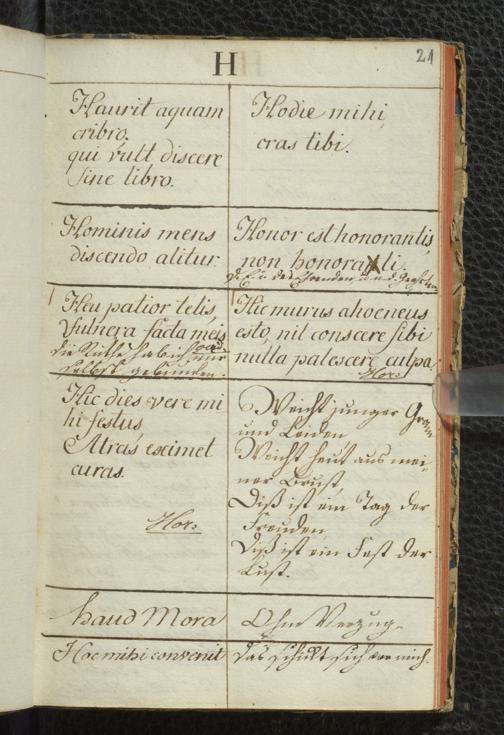 H
21
Haurit aquam
cribro,
qui vult discere
sine libro.
Hodie mihi,
cras tibi.
Hominis mens
discendo alitur.
Honor est honorantis,
non honorati.
Heu patior telis,
Vulnera facta meis
die Ruthe hab ich mir
selbst gebunden.
Hic murus aheneus
esto, nil conscere sibi
nulla palescere culpa
Hor:
Hic dies, vere mi
hi festus,
Atras eximet
curas.
Hor:
Weicht junger Gram
und Leiden
Weicht heut aus mei-
ner Brust,
Diß ist ein Tag der
Freuden,
Diß ist ein Fest der
Lust.
haud Mora
Ohn Verzug.
Hoc mihi convenit
das schickt sich vor mich.